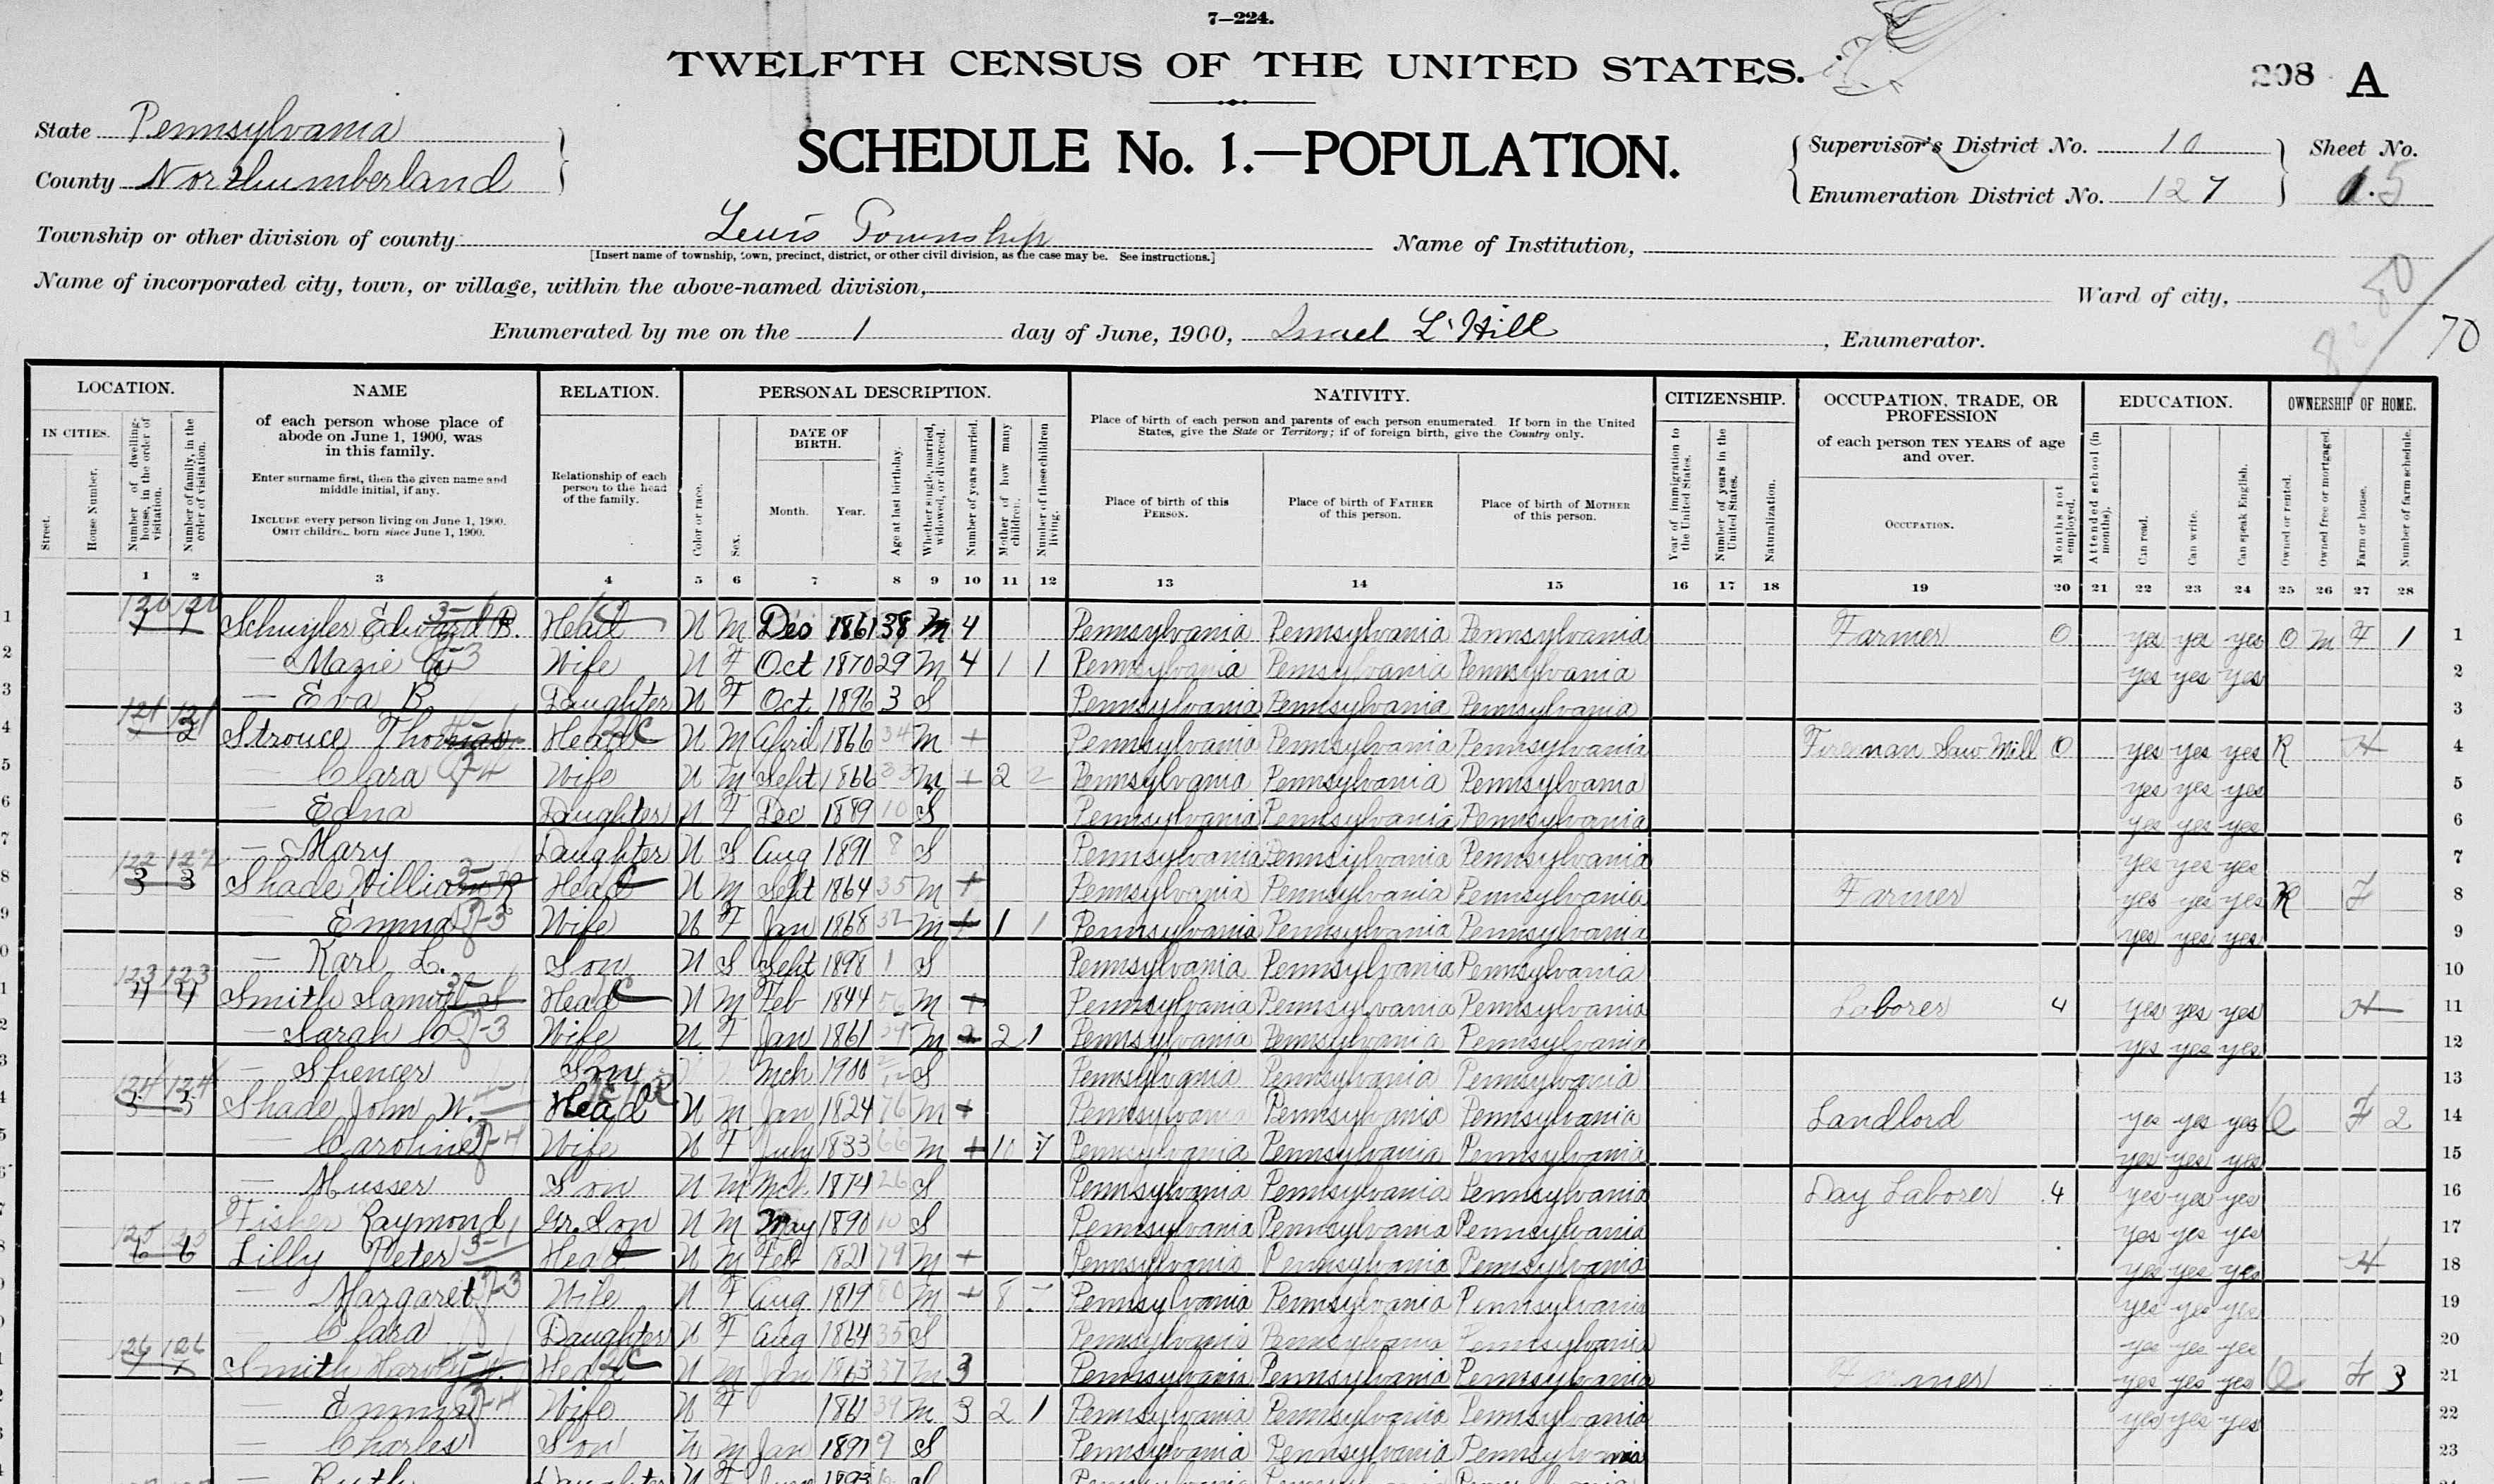 7—224.
TWELFTH CENSUS OF THE UNITED STATES.
208 A
State Pennsylvania
County Northumberland
SCHEDULE No. 1.—POPULATION.
Supervisor's District No. 10
Enumeration District No. 127
Sheet No.
15
Township or other division of county Lewis Township
[Insert name of township, town, precinct, district, or other civil division, as the case may be. See instructions.]
Name of Institution,
Name of incorporated city, town, or village, within the above-named division,
Ward of city,
Enumerated by me on the 1 day of June, 1900, Israel L. Hill, Enumerator.
70
LOCATION. NAME RELATION. PERSONAL DESCRIPTION. NATIVITY. CITIZENSHIP. OCCUPATION, TRADE, OR PROFESSION EDUCATION. OWNERSHIP OF HOME.
IN CITIES.
Street.
House Number.
Number of dwelling-house, in the order of visitation.
Number of family, in the order of visitation.
of each person whose place of abode on June 1, 1900, was in this family.
Enter surname first, then the given name and middle initial, if any.
INCLUDE every person living on June 1, 1900.
OMIT children born since June 1, 1900.
Relationship of each person to the head of the family.
Color or race.
Sex.
DATE OF BIRTH.
Month. Year.
Age at last birthday.
Whether single, married, widowed, or divorced.
Number of years married.
Mother of how many children.
Number of these children living.
Place of birth of each person and parents of each person enumerated. If born in the United States, give the State or Territory; if of foreign birth, give the Country only.
Place of birth of this PERSON.
Place of birth of FATHER of this person.
Place of birth of MOTHER of this person.
Year of immigration to the United States.
Number of years in the United States.
Naturalization.
of each person TEN YEARS of age and over.
OCCUPATION.
Months not employed.
Attended school (in months).
Can read.
Can write.
Can speak English.
Owned or rented.
Owned free or mortgaged.
Farm or house.
Number of farm schedule.
1 2 3 4 5 6 7 8 9 10 11 12 13 14 15 16 17 18 19 20 21 22 23 24 25 26 27 28
1 120 120 Schuyler Edward B. Head W M Dec 1861 38 M 4 Pennsylvania Pennsylvania Pennsylvania Farmer 0 yes yes yes O M F 1 1
2 — Mazie Wife W F Oct 1870 29 M 4 1 1 Pennsylvania Pennsylvania Pennsylvania yes yes yes 2
3 — Eva B. Daughter W F Oct 1896 3 S Pennsylvania Pennsylvania Pennsylvania 3
4 121 121 Strouce Thomas Head W M April 1866 34 M + Pennsylvania Pennsylvania Pennsylvania Fireman Saw Mill 0 yes yes yes R H 4
5 — Clara Wife W M Sept 1866 33 M + 2 2 Pennsylvania Pennsylvania Pennsylvania yes yes yes 5
6 — Edna Daughter W F Dec 1889 10 S Pennsylvania Pennsylvania Pennsylvania yes yes yes 6
7 — Mary Daughter W S Aug 1891 8 S Pennsylvania Pennsylvania Pennsylvania yes yes yes 7
8 122 122 3 3 Shade William R Head W M Sept 1864 35 M + Pennsylvania Pennsylvania Pennsylvania Farmer yes yes yes R F 8
9 — Emma Wife W F Jan 1868 32 M + 1 1 Pennsylvania Pennsylvania Pennsylvania yes yes yes 9
0 — Karl L. Son W S Sept 1898 1 S Pennsylvania Pennsylvania Pennsylvania 10
1 123 123 4 4 Smith Samuel S Head W M Feb 1844 56 M + Pennsylvania Pennsylvania Pennsylvania Laborer 4 yes yes yes H 11
2 — Sarah Wife W F Jan 1861 39 M 2 1 Pennsylvania Pennsylvania Pennsylvania yes yes yes 12
3 — Spencer Son Mch 1900 2/12 S Pennsylvania Pennsylvania Pennsylvania 13
4 124 124 5 5 Shade John W. Head W M Jan 1824 76 M + Pennsylvania Pennsylvania Pennsylvania Landlord yes yes yes O F 2 14
5 — Caroline Wife W F July 1833 66 M + 10 7 Pennsylvania Pennsylvania Pennsylvania yes yes yes 15
6 — Musser Son W M Mch. 1874 26 S Pennsylvania Pennsylvania Pennsylvania Day Laborer 4 yes yes yes 16
7 Fisher Raymond Gr. Son W M May 1890 10 S Pennsylvania Pennsylvania Pennsylvania yes yes yes 17
8 125 125 6 6 Lilly Peter Head W M Feb 1821 79 M + Pennsylvania Pennsylvania Pennsylvania yes yes yes H 18
9 — Margaret Wife W F Aug 1819 80 M + 8 Pennsylvania Pennsylvania Pennsylvania yes yes yes 19
0 — Clara Daughter W F Aug 1864 35 S Pennsylvania Pennsylvania Pennsylvania yes yes yes 20
1 126 126 7 7 Smith Harvey Head W M Jan 1863 37 M 3 Pennsylvania Pennsylvania Pennsylvania Farmer yes yes yes O F 3 21
2 — Emma Wife W F 1861 39 M 3 2 1 Pennsylvania Pennsylvania Pennsylvania yes yes yes 22
3 — Charles Son W M Jan 1891 9 S Pennsylvania Pennsylvania Pennsylvania 23
— Ruth Daughter W F June 1893 6 S